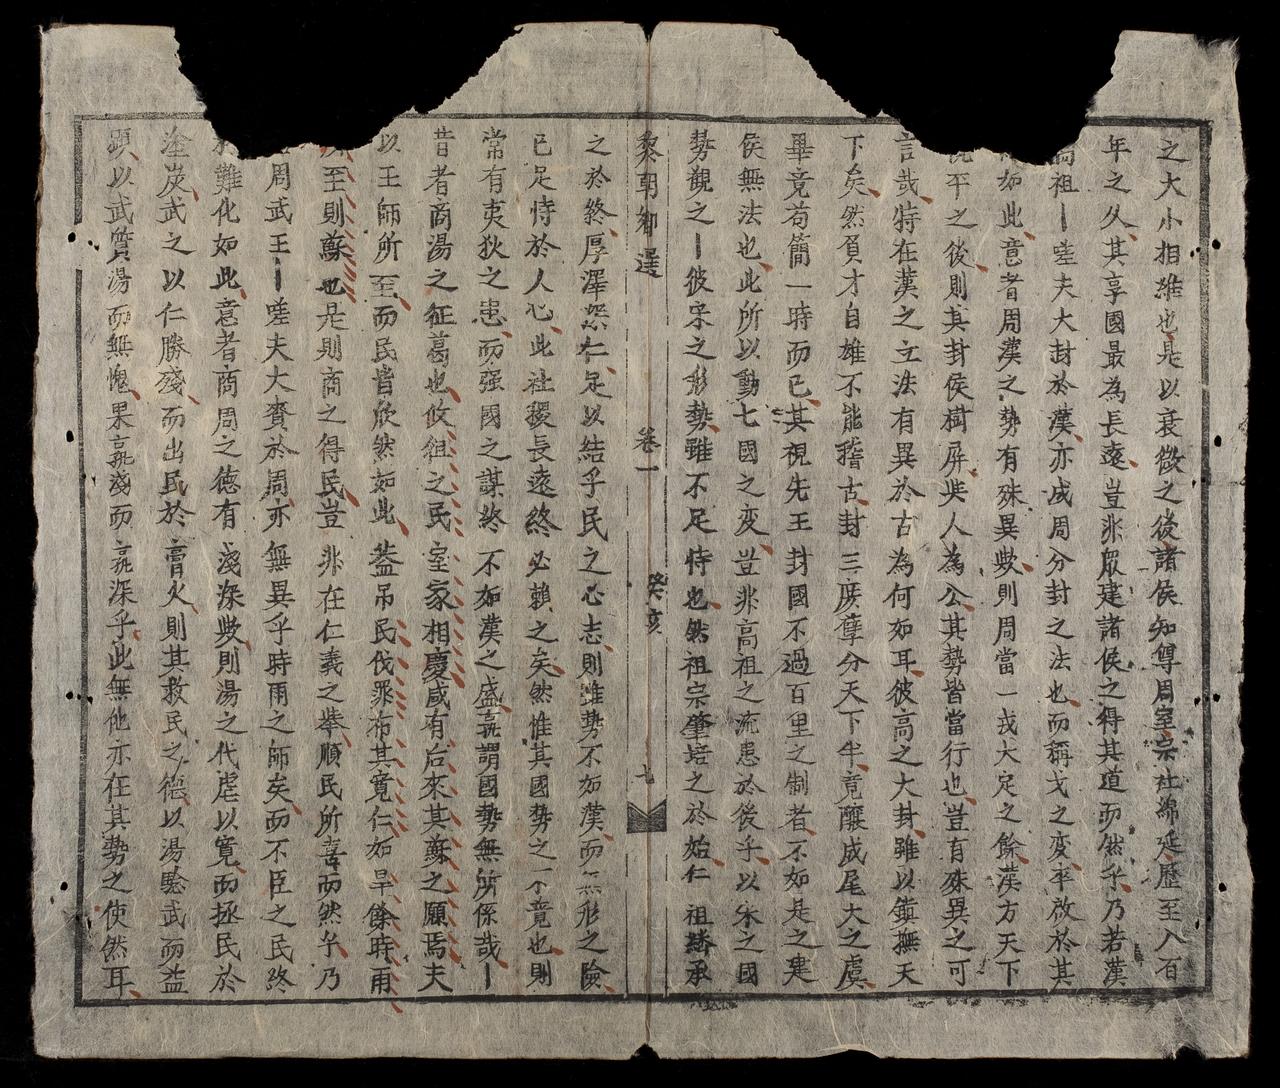 之大小相維也是以衰微之後諸侯知尊周室宗社綿延歷至八百
年之久其享國最為長遠豈非眾建諸侯之得其道而然乎乃若漢
高祖丨噫夫大封於漢亦成周分封之法也而稱戈之变卒啟於其
如此意者周漢之勢有殊異歟則周當一戎大定之餘漢方天下
平之後則其封侯樹屏柴人為公其勢皆當行也豈有殊異之可
言哉特在漢之立法有異於古為何如耳彼高之大封雖以鎮撫天
下矣然負才自雄不能稽古封三庶孽分天下半竟釀成尾大之虞
畢竟苟簡一時而已其視先王封國不過百里之制者不如是之建
侯無法也此所以動七國之变豈非高祖之流患於後乎以宋之國
勢觀之丨彼宋之形勢雖不足恃也然祖宗肇培之於始仁祖承
黎朝鄉選 卷一 癸亥 七
之於終厚澤仁足以結乎民之心志則雖勢不如漢而無形之險
已足恃於人心此社稷長遠終必賴之矣然惟其國勢之不竟也則
常有夷狄之患而强國之謀終不如漢之盛孰謂國勢無所係哉丨
昔者商湯之征葛也攸徂之民室家相慶咸有后來其蘇之願焉夫
以王師所至而民皆欣然如此盖吊民伐罪布其寬仁如旱餘時雨
至則蘇也是則商之得民豈非在仁義之举順民所喜而然乎乃
周武王丨噫夫大賚於周亦無異乎時雨之師矣而不臣之民終
難化如此意者商周之德有淺深歟則湯之代虐以寬而拯民於
塗炭武之以仁勝殘而出民於膏火則其救民之德以湯武而益
顕以武質湯而無愧果孰淺而孰深乎此無他亦在其勢之使然耳